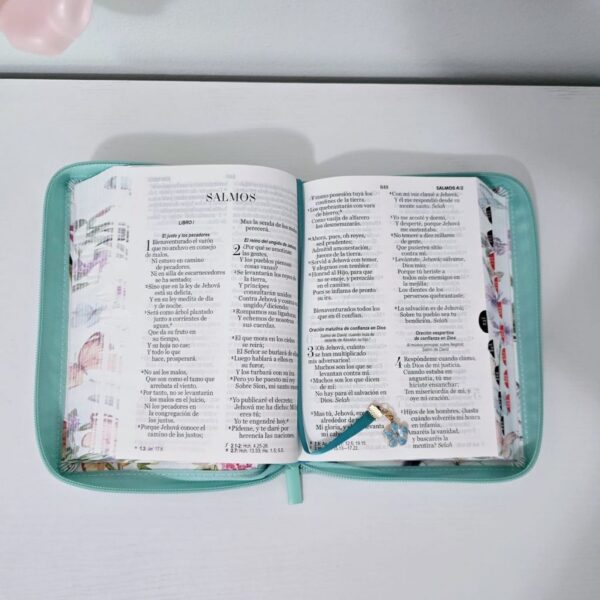 SALMOS
LIBRO I
El justo y los pecadores
1 Bienaventurado el varón
que no anduvo en consejo
de malos,
Ni estuvo en camino
de pecadores,
Ni en silla de escarnecedores
se ha sentado;
2 Sino que en la ley de Jehová
está su delicia,
Y en su ley medita de día
y de noche.
3 Será como árbol plantado
junto a corrientes de
aguas,
Que da su fruto en
su tiempo,
Y su hoja no cae;
Y todo lo que
hace, prosperará.
4 No así los malos,
Que son como el tamo que
arrebata el viento.
5 Por tanto, no se levantarán
los malos en el juicio,
Ni los pecadores en
la congregación de
los justos;
6 Porque Jehová conoce el
camino de los justos;
1.3: Jer. 17.8.
Mas la senda de los malos
perecerá.
El reino del ungido de Jehová
2 ¿Por qué se amotinan
las gentes,
Y los pueblos piensan
cosas vanas?
2 Se levantarán los reyes de
la tierra,
Y príncipes
consultarán unidos
Contra Jehová y contra su
ungido, diciendo:
3 Rompamos sus ligaduras,
Y echemos de nosotros
sus cuerdas.
4 El que mora en los cielos
se reirá;
El Señor se burlará de ellos.
5 Luego hablará a ellos en
su furor,
Y los turbará con su ira.
6 Pero yo he puesto mi rey
Sobre Sion, mi santo monte.
7 Yo publicaré el decreto;
Jehová me ha dicho: Mi hijo
eres tú;
Yo te engendré hoy.
8 Pídeme, y te daré por
herencia las naciones,
2.1-2: Hch. 4.25-26.
2.7: Hch. 13.33; He. 1.5; 5.5.
Y como posesión tuya los
confines de la tierra.
9 Los quebrantarás con vara
de hierro;
Como vasija de alfarero
los desmenuzarás.
10 Ahora, pues, oh reyes,
sed prudentes;
Admitid amonestación,
jueces de la tierra.
11 Servid a Jehová con temor,
Y alegraos con temblor.
12 Honrad al Hijo, para que
no se enoje, y perezcáis
en el camino;
Pues se inflama de pronto
su ira.
Bienaventurados todos los
que en él confían.
Oración matutina de confianza en Dios
3 ¡Oh Jehová, cuánto
se han multiplicado
mis adversarios!
Muchos son los que se
levantan contra mí.
2 Muchos son los que dicen
de mí:
No hay para él salvación en
Dios. Selah
3 Mas tú, Jehová,
alrededor de
Mi gloria, y
levanta mi
SALMOS 4:2
4 Con mi voz clamé a Jehová,
Y él me respondió desde su
monte santo. Selah
5 Yo me acosté y dormí,
Y desperté, porque Jehová
me sustentaba.
6 No temeré a diez millares
de gente,
Que pusieren sitio
contra mí.
7 Levántate, Jehová; sálvame,
Dios mío;
Porque tú heriste a
todos mis enemigos en
la mejilla;
Los dientes de los
perversos quebrantaste.
8 La salvación es de Jehová;
Sobre tu pueblo sea tu
bendición. Selah
Oración vespertina
de confianza en Dios
4 Respóndeme cuando clamo,
oh Dios de mi justicia.
Cuando estaba en
angustia, tú me
hiciste ensanchar;
Ten misericordia de mí, y
oye mi oración.
2 Hijos de los hombres, ¿hasta
cuándo volveréis mi honra
en infamia,
Amaréis la vanidad,
y buscaréis la
mentira? Selah